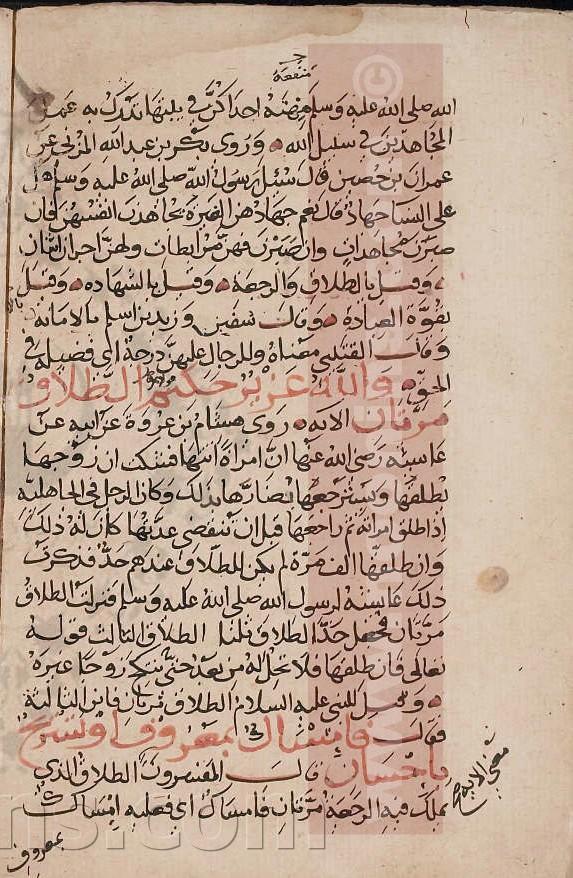 منفعة
الله صلى الله عليه وسلم مهنة احداكن في بيتها تدرك به عمل
المجاهدين في سبيل الله وروى بكر بن عبد الله المزني عن
عمران بن حصين قال سئل رسول الله صلى الله عليه وسلم هل
على النسا جهاد قال نعم جهادهن الغيرة يجاهدن انفسهن فان
صبرن فمجاهدات وان صبرن فهن مرابطات ولهن اجران اثنان
وقيل بالطلاق والرجعة وقيل بالشهاده وقيل
بقوة العبادة وقال سفين وزيد بن اسلم بالامانة
وقال القتيبي معناه وللرجال عليهن درجة اي فضيلة في
الحق والله عزيز حكيم الطلاق
مرتان الاية روى هشام بن عروة عن ابيه عن
عايشة رضى الله عنها ان امراة اتتها فشكت ان زوجها
يطلقها ويسترجعها يضارها بذلك وكان الرجل في الجاهلية
اذا طلق امراته ثم راجعها قبل ان تنقضي عدتها كان له ذلك
وان طلقها الف مرة لم يكن للطلاق عندهم حد فذكرت
ذلك عايشة لرسول الله صلى الله عليه وسلم فنزلت الطلاق
مرتان فجعل حد الطلاق ثلثا الطلاق الثالث قوله
تعالى فان طلقها فلا تحل له من بعد حتى تنكح زوجا غيره
وقيل للنبي عليه السلام الطلاق مرتان فاين الثالثة
فقال فامساك بمعروف او تسريح
باحسان قال المفسرون الطلاق الذي
يملك فيه الرجعة مرتان فامساك اي فعليه امساك
معنى الاية
بمعروف